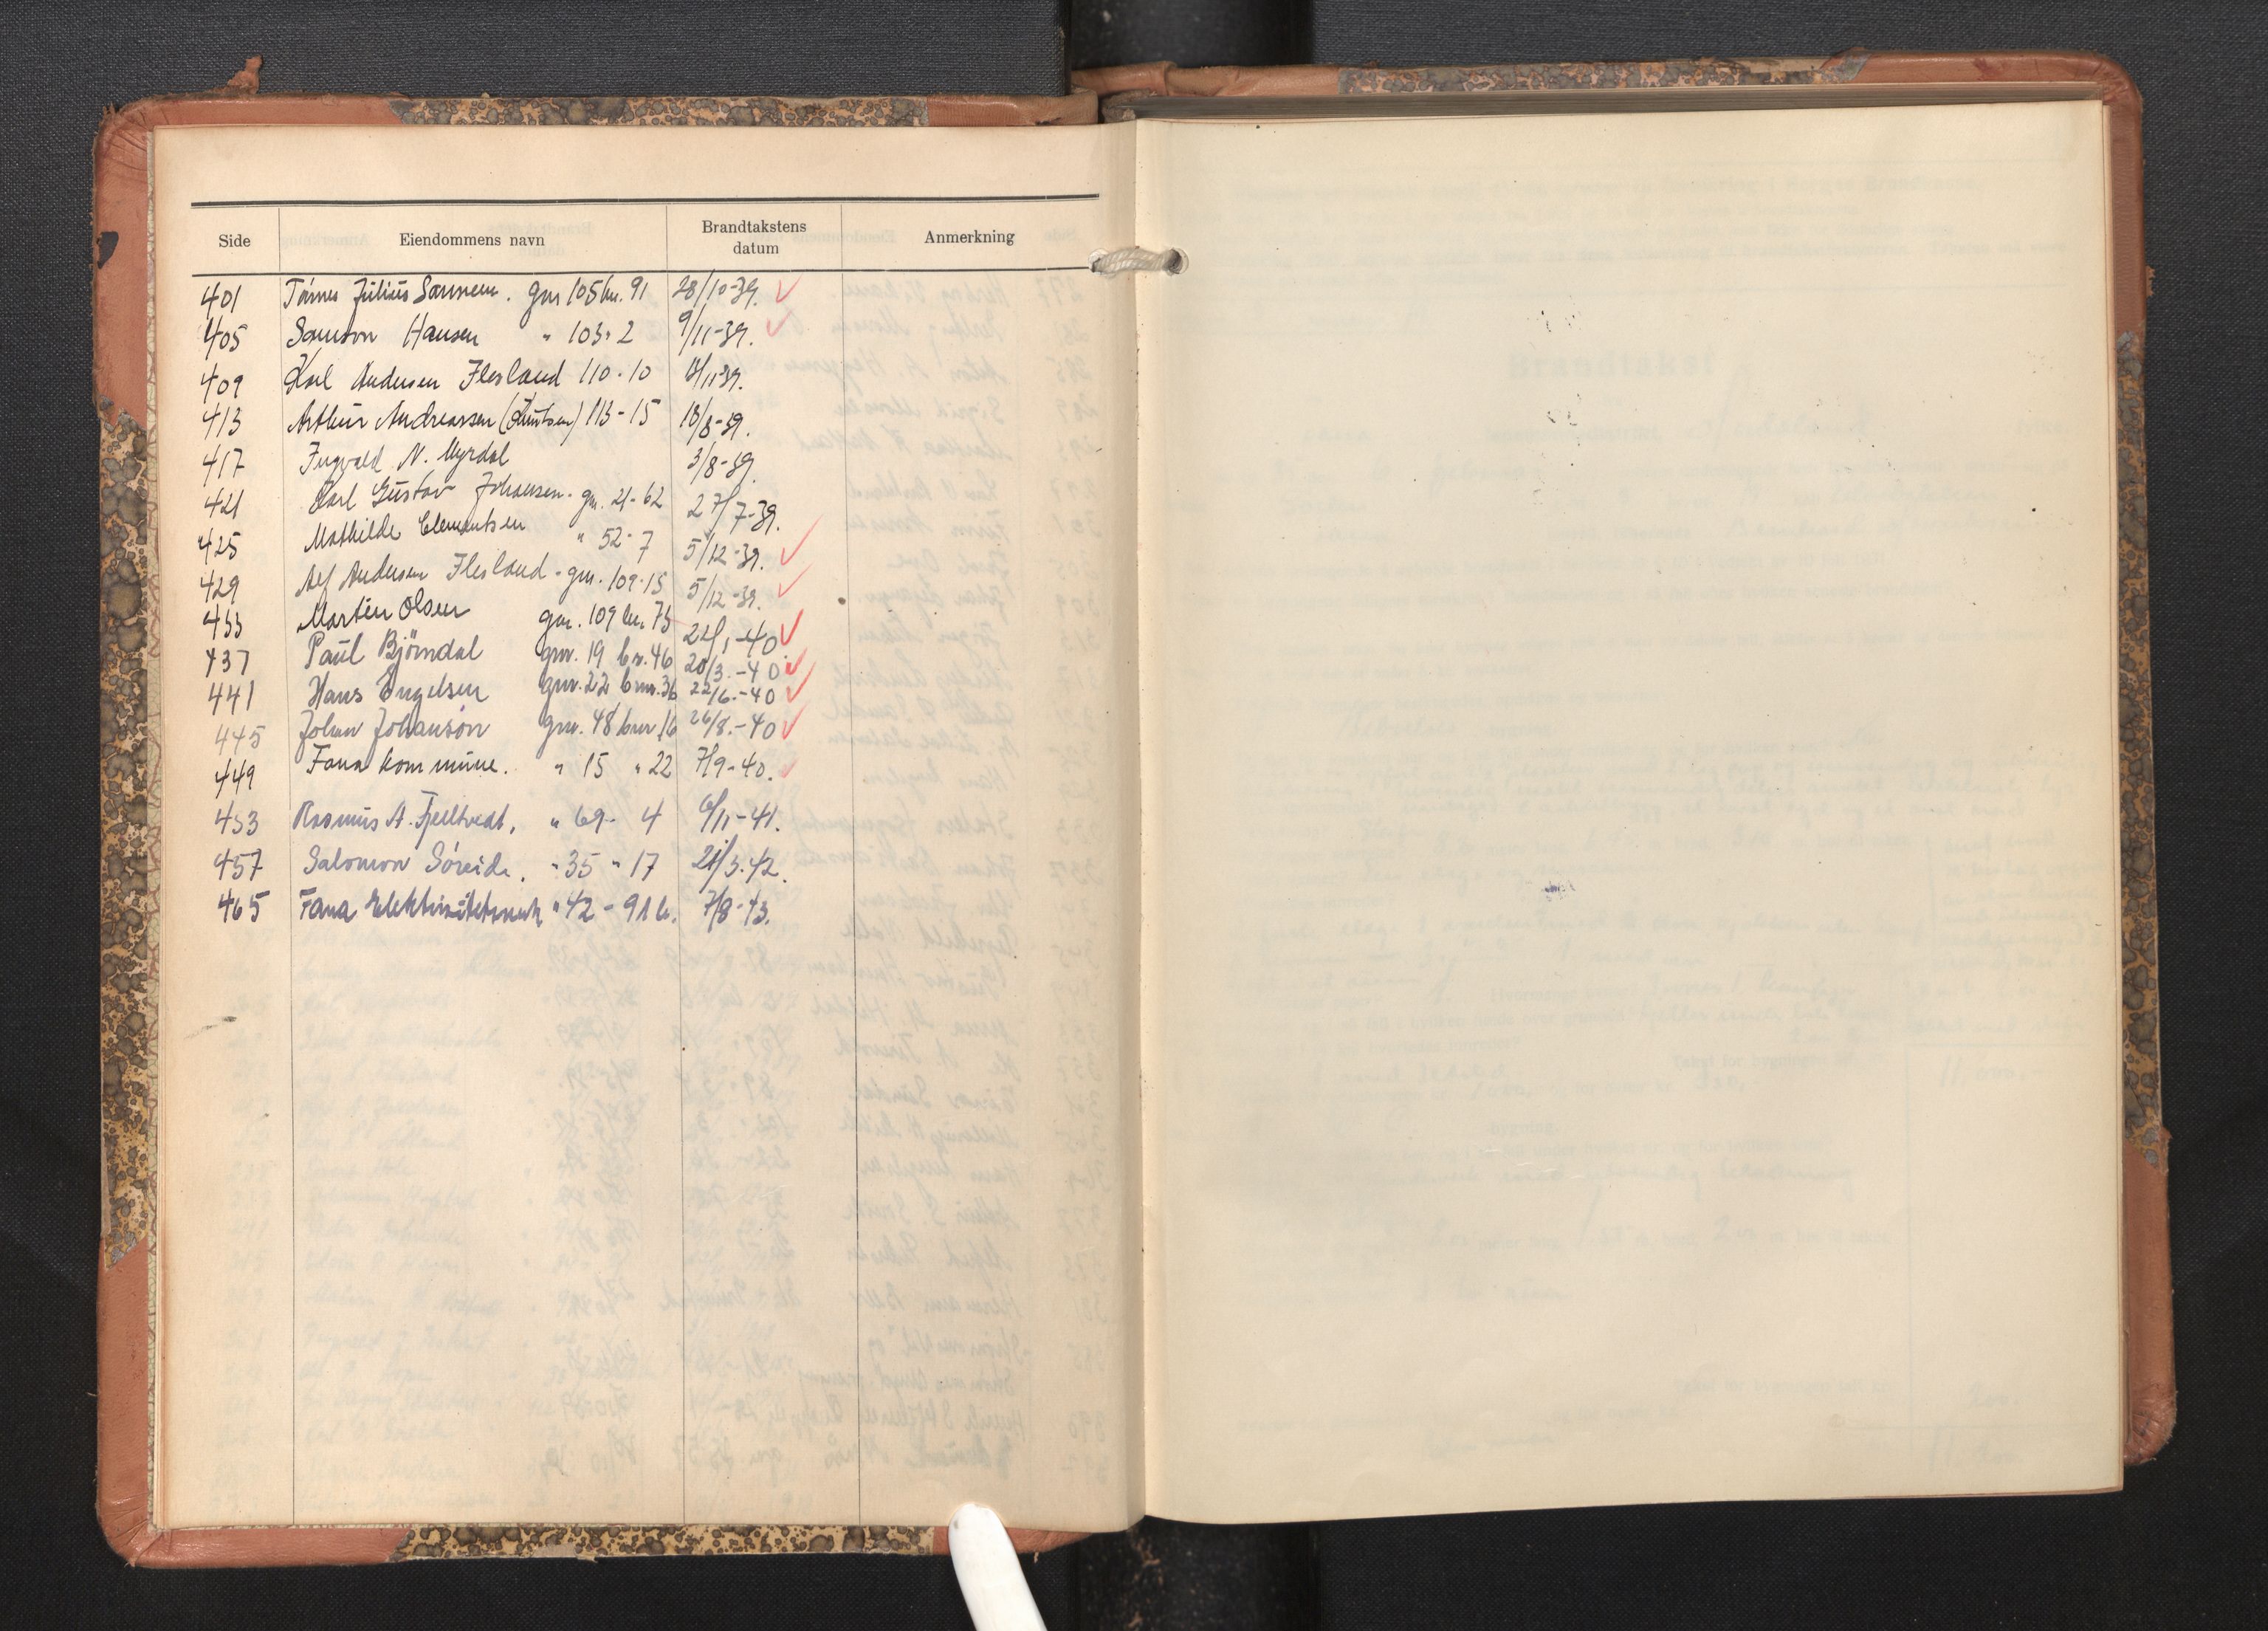 Side Eiendommens navn Brandtakstens datum Anmerkning
401 Julius gnr 105 bn. 91 28/10-39. ✓
405 Samson Hansen " 103 " 2 9/11-39. ✓
409 Karl Andersen Flesland 110 - 10 /11-39.
413 Arthur Andreassen (Knutsen) 113 - 15 18/8-39.
417 Ingvald N. Myrdal 3/8-39.
421 Karl Gustav Johansen - gnr. 21 - 62 27/7-39.
425 Mathilde Clementsen " 52 - 7 5/12-39. ✓
429 Alf Andersen Flesland - gnr. 109 - 15 5/12-39. ✓
433 Martin Olsen gnr. 109 bn. 75 22/1-40 ✓
437 Paul Björndal gnr. 19 br. 46 20/3.-40. ✓
441 Hans Engelsen gnr. 22 bnr. 36 22/6.-40 ✓
445 Johan Johanson gnr. 48 bnr 16 26/8.-40 ✓
449 Fana kommune. " 15 " 22 7/9-40. ✓
453 Rasmus A. Fjelltvedt. " 69 - 4 6/11-41.
457 Salomon Söreide. " 35 " 17 21/3.42.
465 Fana Elektrisitetsverk " 42 - 91 b. 7/8-43.